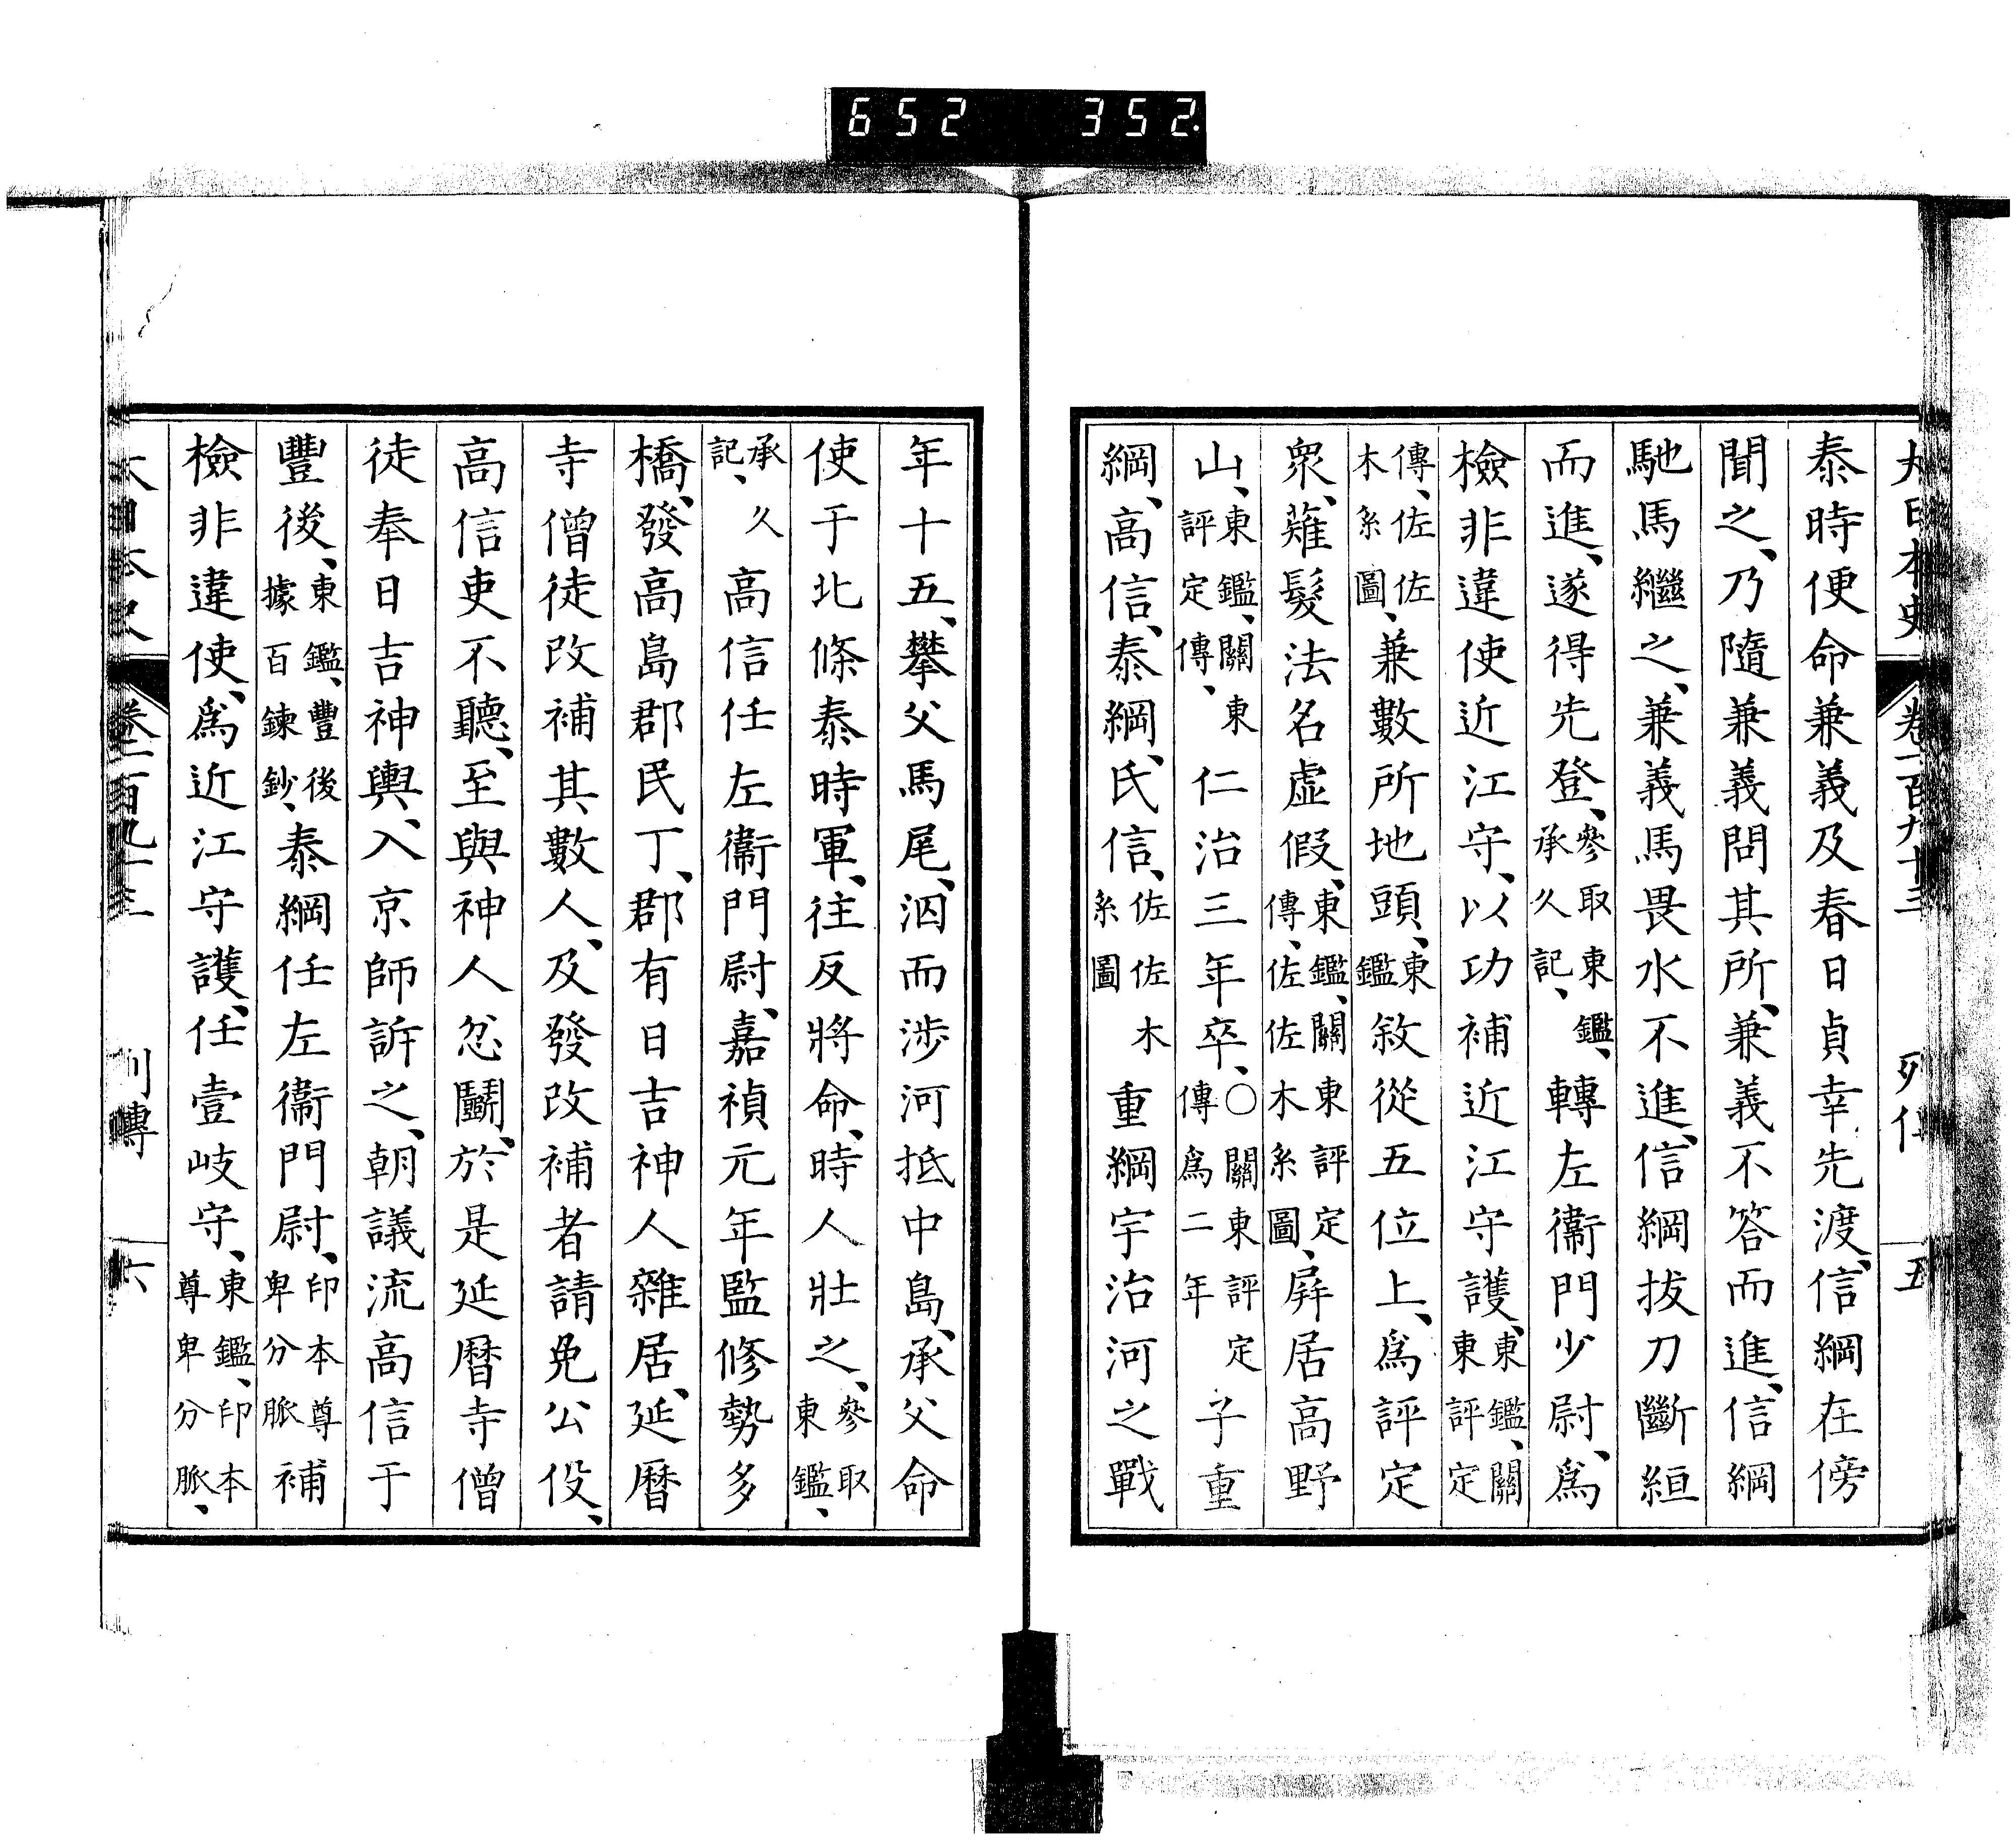 652 352.
大日本史 卷一百九十三 列傳 五
泰時便命兼義及春日貞幸先渡、信綱在傍
聞之、乃隨兼義問其所、兼義不答而進、信綱
馳馬繼之、兼義馬畏水不進、信綱拔刀斷絙
而進、遂得先登、參取東鑑、承久記、轉左衞門少尉、爲
檢非違使近江守、以功補近江守護、東鑑、關東評定
傳、佐佐木系圖、兼數所地頭、東鑑敘從五位上、爲評定
衆、薙髮法名虛假、東鑑、關東評定傳、佐佐木系圖、屛居高野
山、東鑑、關東評定傳、仁治三年卒、○關東評定傳爲二年子重
綱、高信、泰綱、氏信、佐佐木系圖重綱宇治河之戰
年十五、攀父馬尾、泅而涉河抵中島、承父命
使于北條泰時軍、往反將命、時人壯之、參取東鑑、
承久記、高信任左衞門尉、嘉禎元年監修勢多
橋、發高島郡民丁、郡有日吉神人雜居、延曆
寺僧徒改補其數人、及發改補者請免公役、
高信吏不聽、至與神人忿鬪、於是延曆寺僧
徒奉日吉神輿、入京師訴之、朝議流高信于
豐後、東鑑、豐後據百鍊鈔、泰綱任左衞門尉、印本尊卑分脈補
檢非違使、爲近江守護、任壹岐守、東鑑、印本尊卑分脈、
大日本史 卷一百九十三 列傳 六